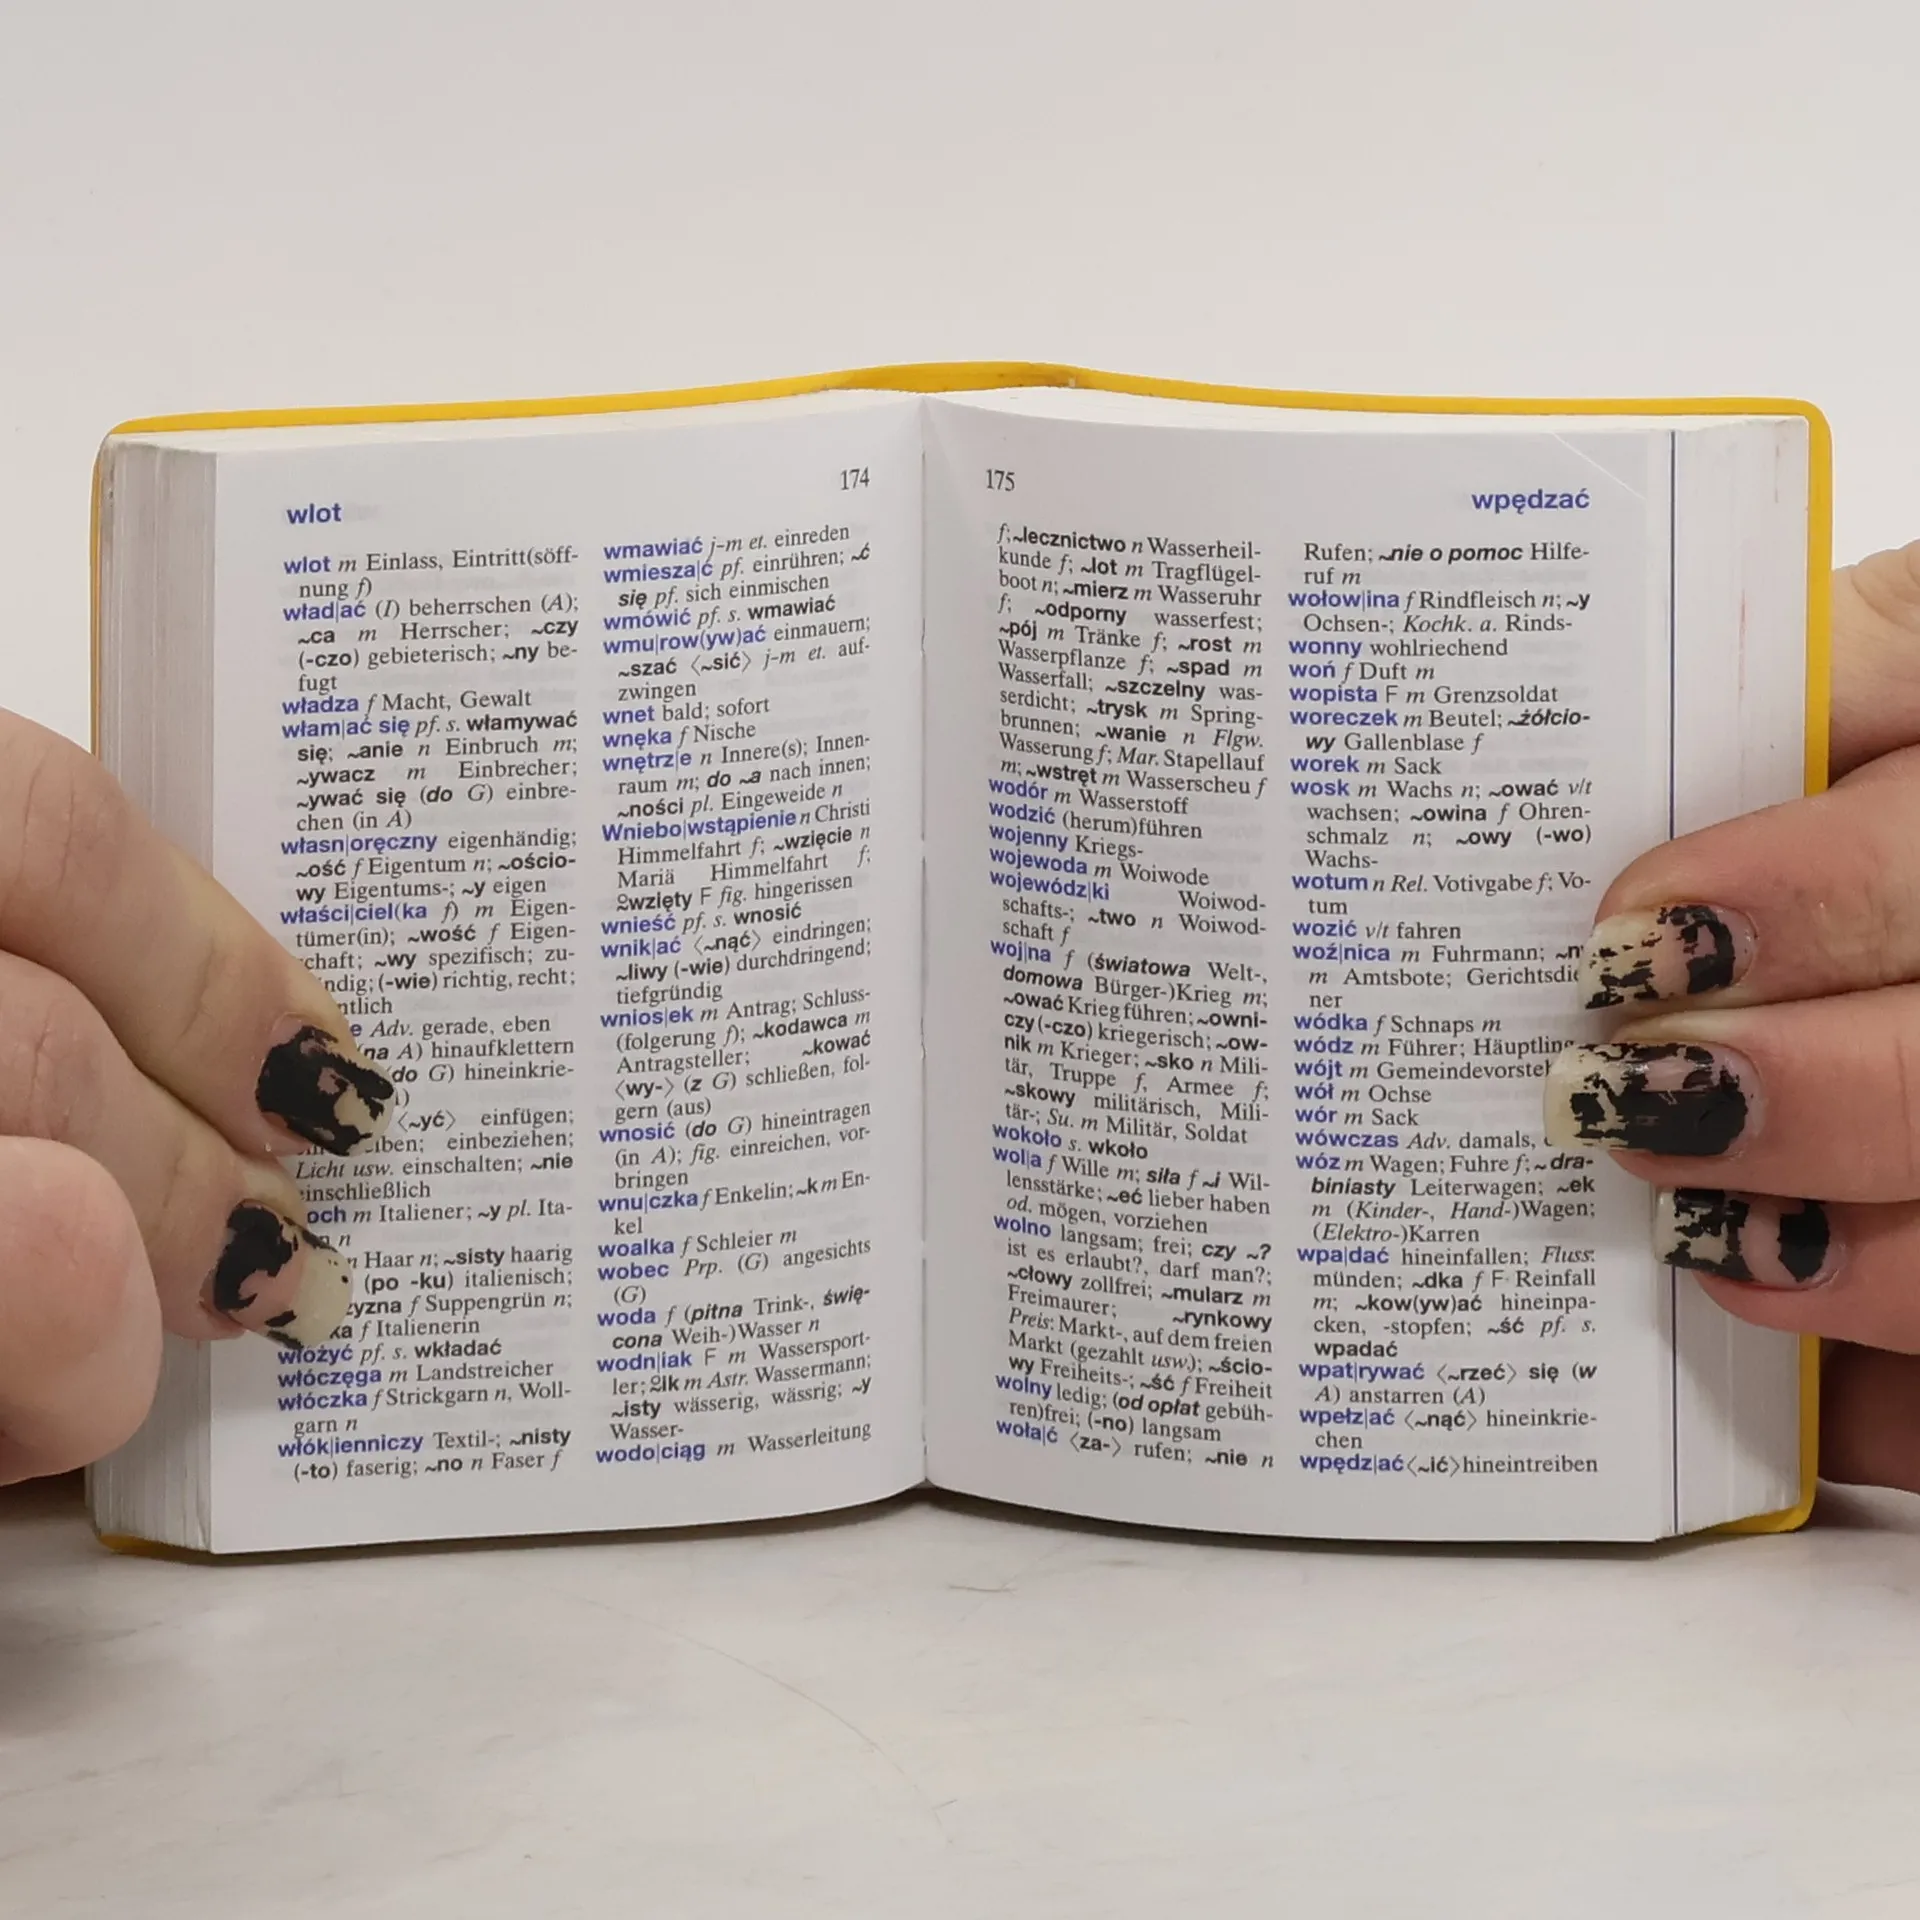 174
wlot
wlot m Einlass, Eintritt(söff-
nung f)
wład|ać (I) beherrschen (A);
~ca m Herrscher; ~czy
(-czo) gebieterisch; ~ny be-
fugt
władza f Macht, Gewalt
włam|ać się pf. s. włamywać
się; ~anie n Einbruch m;
~ywacz m Einbrecher;
~ywać się (do G) einbre-
chen (in A)
własn|oręczny eigenhändig;
~ość f Eigentum n; ~ościo-
wy Eigentums-; ~y eigen
właści|ciel(ka f) m Eigen-
tümer(in); ~wość f Eigen-
chaft; ~wy spezifisch; zu-
ndig; (-wie) richtig, recht;
ntlich
e Adv. gerade, eben
(na A) hinaufklettern
(do G) hineinkrie-
)
⟨~yć⟩ einfügen;
iben; einbeziehen;
Licht usw. einschalten; ~nie
einschließlich
och m Italiener; ~y pl. Ita-
n n
n Haar n; ~sisty haarig
(po -ku) italienisch;
zyzna f Suppengrün n;
ka f Italienerin
włożyć pf. s. wkładać
włóczęga m Landstreicher
włóczka f Strickgarn n, Woll-
garn n
włók|ienniczy Textil-; ~nisty
(-to) faserig; ~no n Faser f
wmawiać j-m et. einreden
wmiesza|ć pf. einrühren; ~ć
się pf. sich einmischen
wmówić pf. s. wmawiać
wmu|row(yw)ać einmauern;
~szać ⟨~sić⟩ j-m et. auf-
zwingen
wnet bald; sofort
wnęka f Nische
wnętrz|e n Innere(s); Innen-
raum m; do ~a nach innen;
~ności pl. Eingeweide n
Wniebo|wstąpienie n Christi
Himmelfahrt f; ~wzięcie n
Mariä Himmelfahrt f;
2wzięty F fig. hingerissen
wnieść pf. s. wnosić
wnik|ać ⟨~nąć⟩ eindringen;
~liwy (-wie) durchdringend;
tiefgründig
wnios|ek m Antrag; Schluss-
(folgerung f); ~kodawca m
Antragsteller; ~kować
⟨wy-⟩ (z G) schließen, fol-
gern (aus)
wnosić (do G) hineintragen
(in A); fig. einreichen, vor-
bringen
wnu|czka f Enkelin; ~k m En-
kel
woalka f Schleier m
wobec Prp. (G) angesichts
(G)
woda f (pitna Trink-, świę-
cona Weih-)Wasser n
wodn|iak F m Wassersport-
ler; 2ik m Astr. Wassermann;
~isty wässerig, wässrig; ~y
Wasser-
wodo|ciąg m Wasserleitung
175
wpędzać
f; ~lecznictwo n Wasserheil-
kunde f; ~lot m Tragflügel-
boot n; ~mierz m Wasseruhr
f; ~odporny wasserfest;
~pój m Tränke f; ~rost m
Wasserpflanze f; ~spad m
Wasserfall; ~szczelny was-
serdicht; ~trysk m Spring-
brunnen; ~wanie n Flgw.
Wasserung f; Mar. Stapellauf
m; ~wstręt m Wasserscheu f
wodór m Wasserstoff
wodzić (herum)führen
wojenny Kriegs-
wojewoda m Woiwode
wojewódz|ki Woiwod-
schafts-; ~two n Woiwod-
schaft f
woj|na f (światowa Welt-,
domowa Bürger-)Krieg m;
~ować Krieg führen; ~owni-
czy (-czo) kriegerisch; ~ow-
nik m Krieger; ~sko n Mili-
tär, Truppe f, Armee f;
~skowy militärisch, Mili-
tär-; Su. m Militär, Soldat
wokoło s. wkoło
wol|a f Wille m; siła f ~i Wil-
lensstärke; ~eć lieber haben
od. mögen, vorziehen
wolno langsam; frei; czy ~?
ist es erlaubt?, darf man?;
~cłowy zollfrei; ~mularz m
Freimaurer; ~rynkowy
Preis: Markt-, auf dem freien
Markt (gezahlt usw.); ~ścio-
wy Freiheits-; ~ść f Freiheit
wolny ledig; (od opłat gebüh-
ren)frei; (-no) langsam
woła|ć ⟨za-⟩ rufen; ~nie n
Rufen; ~nie o pomoc Hilfe-
ruf m
wołow|ina f Rindfleisch n; ~y
Ochsen-; Kochk. a. Rinds-
wonny wohlriechend
woń f Duft m
wopista F m Grenzsoldat
woreczek m Beutel; ~żółcio-
wy Gallenblase f
worek m Sack
wosk m Wachs n; ~ować v/t
wachsen; ~owina f Ohren-
schmalz n; ~owy (-wo)
Wachs-
wotum n Rel. Votivgabe f; Vo-
tum
wozić v/t fahren
woź|nica m Fuhrmann; ~n
m Amtsbote; Gerichtsdie
ner
wódka f Schnaps m
wódz m Führer; Häuptling
wójt m Gemeindevorsteh
wół m Ochse
wór m Sack
wówczas Adv. damals,
wóz m Wagen; Fuhre f; ~ dra-
biniasty Leiterwagen; ~ek
m (Kinder-, Hand-)Wagen;
(Elektro-)Karren
wpa|dać hineinfallen; Fluss:
münden; ~dka f F Reinfall
m; ~kow(yw)ać hineinpa-
cken, -stopfen; ~ść pf. s.
wpadać
wpat|rywać ⟨~rzeć⟩ się (w
A) anstarren (A)
wpełz|ać ⟨~nąć⟩ hineinkrie-
chen
wpędz|ać ⟨~ić⟩ hineintreiben